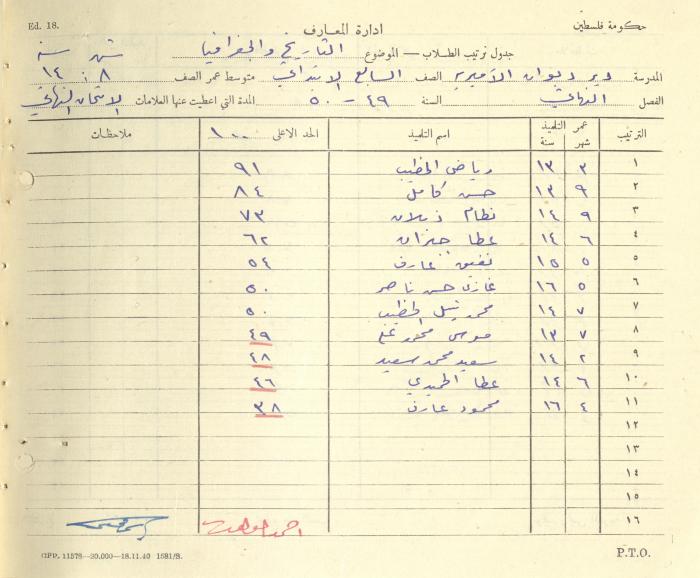 Ed. 18. ادارة المعارف حكومة فلسطين
جدول ترتيب الطلاب — الموضوع التاريخ والجغرافيا شهر سنة
المدرسة دير ديوان الأميرية الصف السابع الابتدائي متوسط عمر الصف ٨ : ١٤
الفصل النهائي السنة ٤٩ - ٥٠ المدة التي اعطيت عنها العلامات الامتحان النهائي
الترتيب عمر التلميذ شهر سنة اسم التلميذ الحد الاعلى ١٠٠ ملاحظات
١ ٣ ١٣ رياض الخطيب ٩١
٢ ٩ ١٣ حسن كامل ٨٤
٣ ٩ ١٤ نظام ٧٣
٤ ٦ ١٤ عطا ٦٢
٥ ٥ ١٥ عارف ٥٤
٦ ٥ ١٦ غازي حسن ناصر ٥٠
٧ ٧ ١٤ محمد نبيل الخطيب ٥٠
٨ ٧ ١٣ موسى محمود ٤٩
٩ ٢ ١٤ سعيد محمد سعيد ٤٨
١٠ ٦ ١٤ عطا الحميدي ٤٦
١١ ٤ ١٦ محمود عارف ٣٨
١٢
١٣
١٤
١٥
١٦
GPP. 11578—20,000—18.11.40 1581/S. P.T.O.